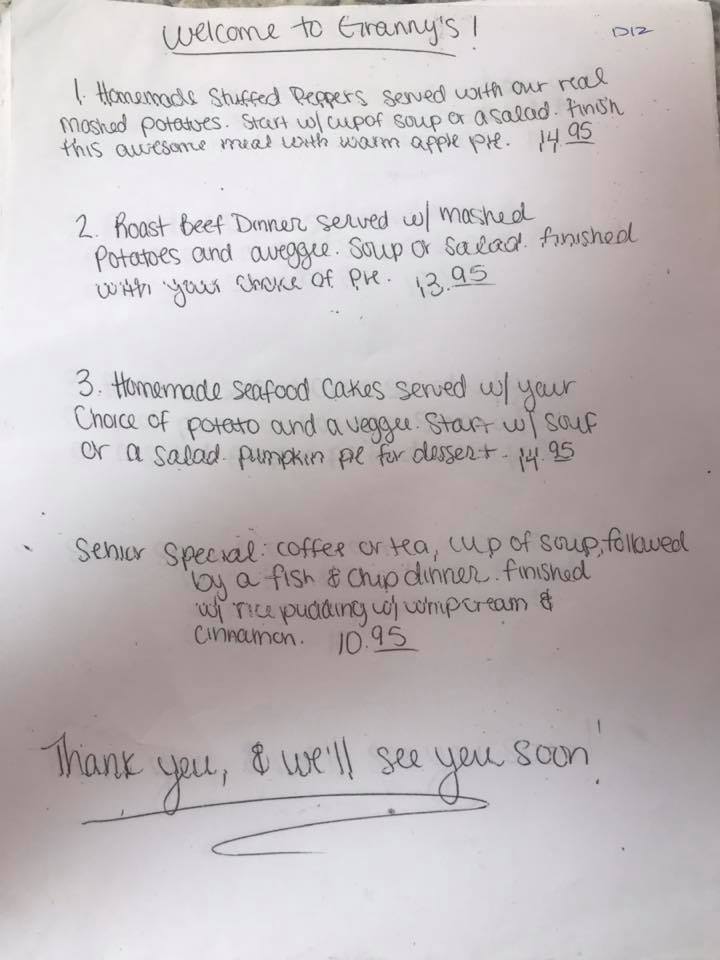 Welcome to Granny's!
D12
1. Homemade Stuffed Peppers served with our real
mashed potatoes. Start w/ cup of soup or a salad. finish
this awesome meal with warm apple pie. 14.95
2. Roast Beef Dinner served w/ mashed
Potatoes and a veggie. Soup or Salad. finished
with your choice of pie. 13.95
3. Homemade Seafood Cakes served w/ your
Choice of potato and a veggie. Start w/ soup
or a salad. pumpkin pie for dessert - 14.95
Senior Special: coffee or tea, cup of soup, followed
by a fish & chip dinner. finished
w/ rice pudding w/ whip cream &
Cinnamon. 10.95
Thank you, & we'll see you soon!